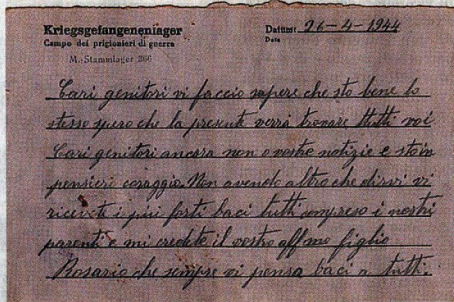 Kriegsgefangenenlager
Campo dei prigionieri di guerra
M.-Stammlager 266
Datum: 26-4-1944
Data
Cari genitori vi faccio sapere che sto bene lo
stesso spero che la presente verrà trovare tutti voi
Cari genitori ancora non o vostre notizie e sto in
pensieri coraggio. Non avendo altro che dirvi vi
ricevete i più forti baci tutti compreso i nostri
parenti e mi credete il vostro affmo figlio
Rosario che sempre vi pensa baci a tutti.